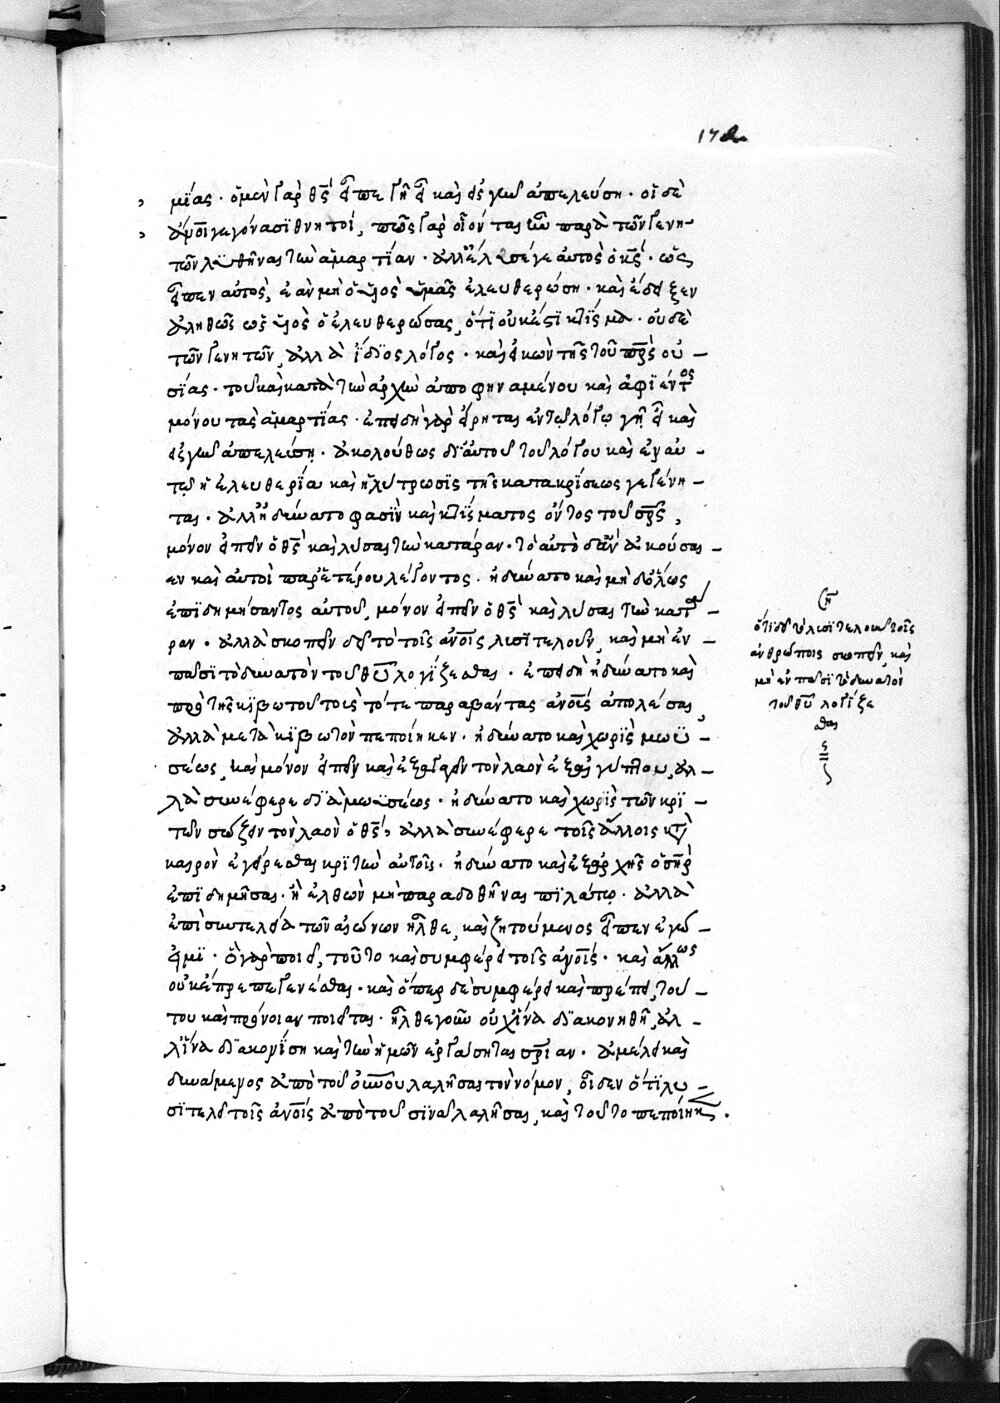 172
μίας· ὁ μὲν γὰρ θς̄ εἶπε γῆ εἶ καὶ εἰς γῆν ἀπελεύσῃ· οἱ δὲ
ἄνοι γεγόνασι θνητοί, πῶς γὰρ οἷόν τε ἦν παρὰ τῶν γενη-
τῶν λυθῆναι τὴν ἁμαρτίαν· ἀλλ' ἔλυσέ γε αὐτὸς ὁ κς̄· ὡς
εἶπεν αὐτός, ἐὰν μὴ ὁ υἱὸς ὑμᾶς ἐλευθερώσῃ· καὶ ἔδειξεν
ἀληθῶς ὡς υἱὸς ὁ ἐλευθερώσας, ὅτι οὐκ ἔστι κτίσμα· οὐδὲ
τῶν γενητῶν, ἀλλὰ ἴδιος λόγος· καὶ εἰκὼν τῆς τοῦ πρς̄ οὐ-
σίας· τοῦ καὶ κατὰ τὴν ἀρχὴν ἀποφηναμένου καὶ ἀφιέντος
μόνου τὰς ἁμαρτίας· ἐπειδὴ γὰρ εἴρηται ἐν τῷ λόγῳ γῆ εἶ καὶ
εἰς γῆν ἀπελεύσῃ· ἀκολούθως δι' αὐτοῦ τοῦ λόγου καὶ ἐν αὐ-
τῷ ἡ ἐλευθερία καὶ ἡ λύτρωσις τῆς κατακρίσεως γεγένη-
ται· ἀλλ' ἠδύνατο φασὶν καὶ κτίσματος ὄντος τοῦ σρς̄,
μόνον εἰπεῖν ὁ θς̄ καὶ λῦσαι τὴν κατάραν· τὸ αὐτὸ δ' ἂν ἀκούσαι-
εν καὶ αὐτοὶ παρ' ἑτέρου λέγοντος· ἠδύνατο καὶ μὴ δ' ὅλως
ἐπιδημήσαντος αὐτοῦ, μόνον εἰπεῖν ὁ θς̄ καὶ λῦσαι τὴν κατά-
ραν· ἀλλὰ σκοπεῖν δεῖ τὸ τοῖς ἀνοις λυσιτελοῦν, καὶ μὴ ἐν
πᾶσι τὸ δυνατὸν τοῦ θῡ λογίζεσθαι· ἐπειδὴ ἠδύνατο καὶ
πρὸ τῆς κιβωτοῦ τοὺς τότε παραβάντας ἀνους ἀπολέσαι,
ἀλλὰ μετὰ κιβωτὸν πεποίηκεν· ἠδύνατο καὶ χωρὶς μωϋ-
σέως, καὶ μόνον εἰπεῖν καὶ ἐξαγαγεῖν τὸν λαὸν ἐξ αἰγύπτου, ἀλ-
λὰ συνέφερε διὰ μωυσέως· ἠδύνατο καὶ χωρὶς τῶν κρι-
τῶν σώζειν τὸν λαὸν ὁ θς̄, ἀλλὰ συνέφερε τοῖς ἄλλοις κατὰ
καιρὸν ἐγείρεσθαι κριτὴν αὐτοῖς· ἠδύνατο καὶ ἐξ ἀρχῆς ὁ σηρ̄
ἐπιδημῆσαι· ἢ ἐλθὼν μὴ παραδοθῆναι πιλάτῳ· ἀλλὰ
ἐπὶ συντελείᾳ τῶν αἰώνων ἦλθε, καὶ ζητούμενος εἶπεν ἐγώ
εἰμι· ὃ γὰρ ποιεῖ, τοῦτο καὶ συμφέρει τοῖς ἀνοις· καὶ ἄλλως
οὐκ ἔπρεπε γενέσθαι· καὶ ὅπερ δὲ συμφέρει καὶ πρέπει, τού-
του καὶ πρόνοιαν ποιεῖται· ἦλθε γοῦν οὐχ ἵνα διακονηθῇ, ἀλ-
λ' ἵνα διακονήσῃ καὶ τὴν ἡμῶν ἐργάσηται σρίαν· ἀμέλει καὶ
δυνάμενος ἀπὸ τοῦ οὐνοῦ λαλῆσαι τὸν νόμον, οἶδεν ὅτι λυ-
σιτελεῖ τοῖς ἀνοις ἀπὸ τοῦ σινᾶ λαλῆσαι, καὶ τοῦτο πεποίηκεν·
ση
ὅτι δεῖ τὸ λυσιτελοῦν τοῖς
ἀνθρώποις σκοπεῖν, καὶ
μὴ ἐν πᾶσι τὸ δυνατὸν
τοῦ θῡ λογίζε
σθαι